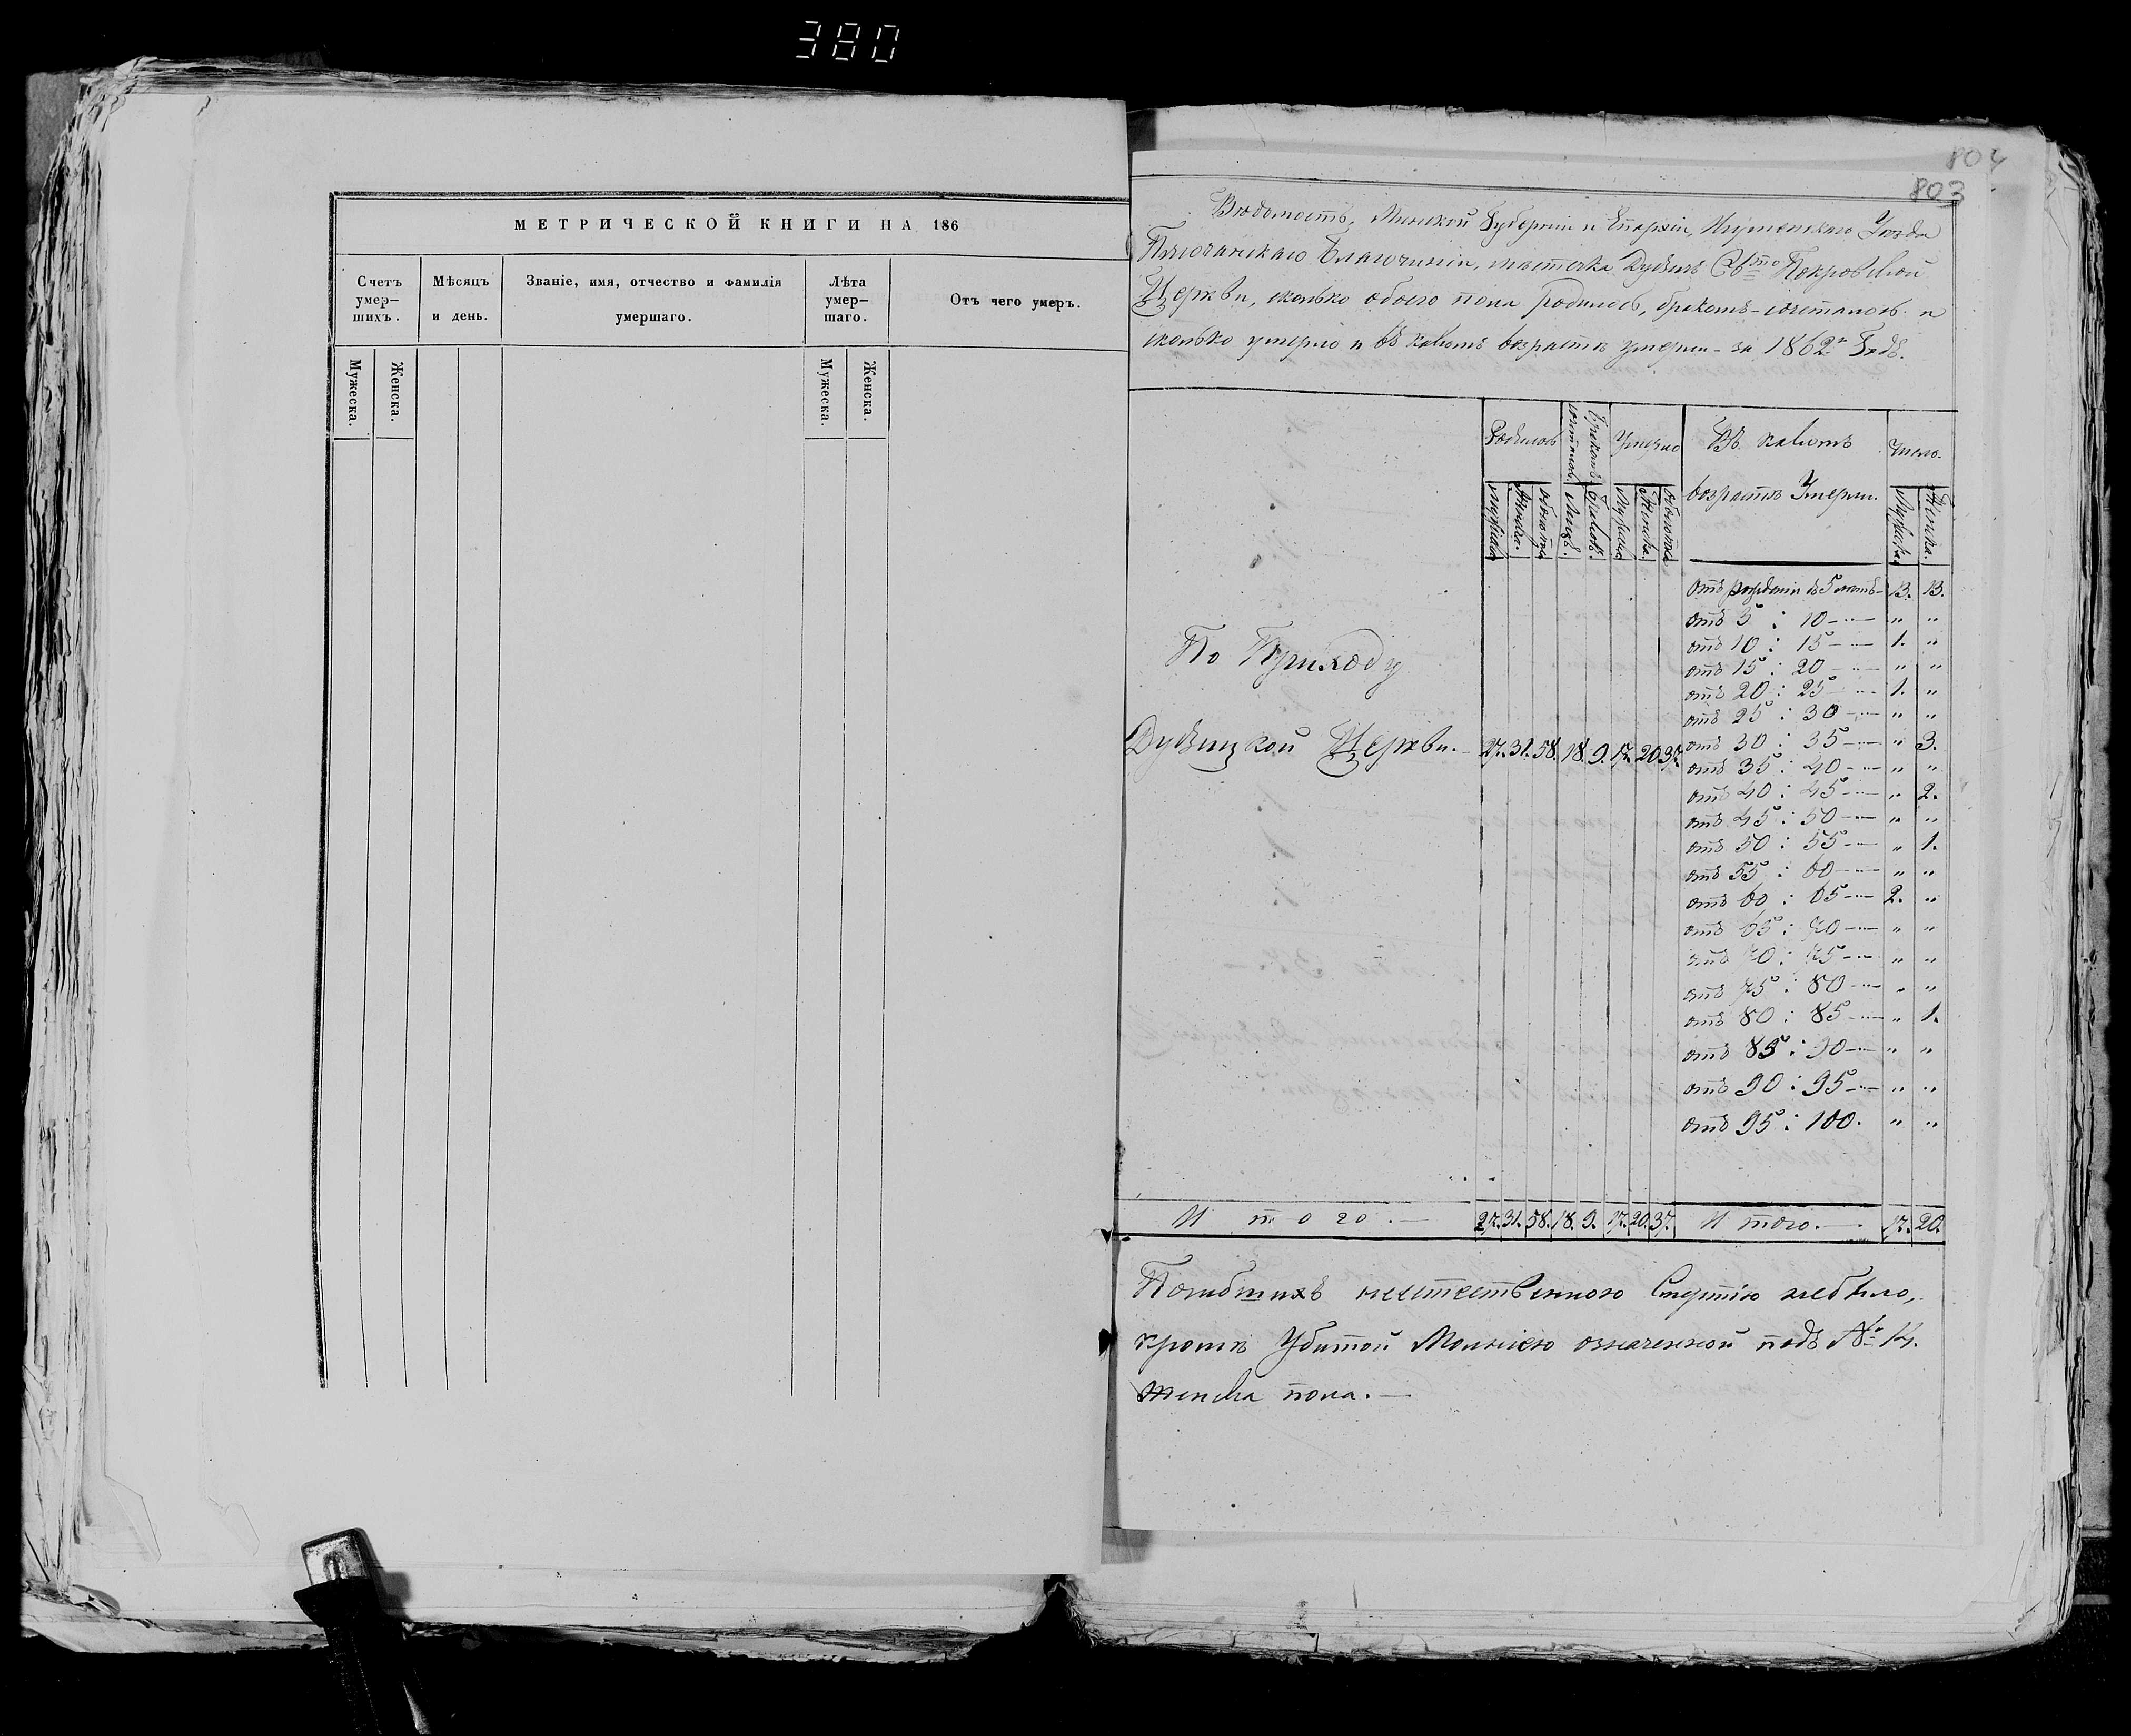 380
МЕТРИЧЕСКОЙ КНИГИ НА 186
Счетъ умер— шихъ.
Мѣсяцъ и день.
Званіе, имя, отчество и фамилія умершаго.
Лѣта умер— шаго.
Отъ чего умеръ.
Мужеска.
Женска.
Мужеска.
Женска.
804
803
Вѣдомость, Минской Губерніи и Епархіи, Игуменскаго Уѣзда
Благочинія, мѣстечка Дудичъ Свято Покровской
Церкви, сколько обоего пола родилось, бракомъ сочеталось и
сколько умерло и въ какомъ возрастѣ умерли за 1862й Годъ.
Родилось
Бракомъ сочеталось
Умерло
Въ какомъ возрастѣ Умерли.
Число.
Мужска
Женска.
обоего
Лицъ.
Браковъ.
Мужска
Женска.
обоего
Мужска
Женска.
Отъ рожденія до 5 лѣтъ 13. 13.
отъ 5 : 10 — „ „
отъ 10 : 15 — 1. „
По Приходу
отъ 15 : 20 — „ „
отъ 20 : 25 — 1. „
отъ 25 : 30 — „ „
Дудицкой Церкви. 27. 31. 58. 18. 9. 17. 20. 37.
отъ 30 : 35 — „ 3.
отъ 35 : 40 — „ „
отъ 40 : 45 — „ 2.
отъ 45 : 50 — „ „
отъ 50 : 55 — „ 1.
отъ 55 : 60 — „ „
отъ 60 : 65 — 2. „
отъ 65 : 70 — „ „
отъ 70 : 75 — „ „
отъ 75 : 80 — „ „
отъ 80 : 85 — „ 1.
отъ 85 : 90 — „ „
отъ 90 : 95 — „ „
отъ 95 : 100. „ „
Итого. — 27. 31. 58. 18. 9. 17. 20. 37. Итого. — 17. 20.
Погибшихъ неестественною Смертію небыло,
кромѣ Убитой Молніею означенной подъ № 14.
женска пола. —